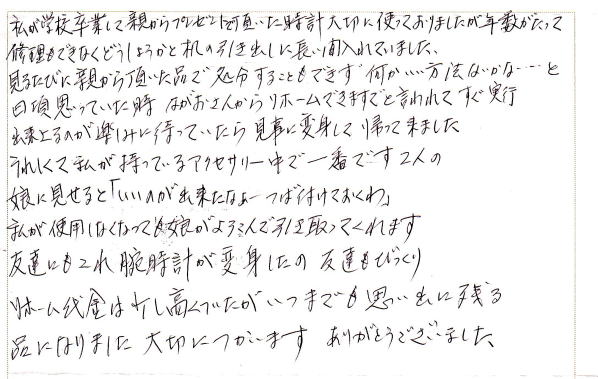 私が学校卒業して親からプレゼントで頂いた時計大切に使っておりましたが年数がたって
修理もできなくどうしようかと机の引き出しに長い間入れていました、
見るたびに親から頂いた品で処分することもできず 何かいい方法ないかな…と
日頃思っていた時 ながおさんからリホームできますでと言われて すぐ実行
出来上るのが楽しみに待っていたら 見事に変身して 帰って来ました
うれしくて私が持っているアクセサリー中で一番です 2人の
娘に見せると「いいのが出来たなぁーつば付けておくわ」
私が使用しなくなっても娘がよろこんで引き取ってくれます
友達にもこれ腕時計が変身したの 友達もびっくり
リホーム代金は少し高くついたがいつまでも思い出に残る
品になりました 大切につかいます ありがとうございました、